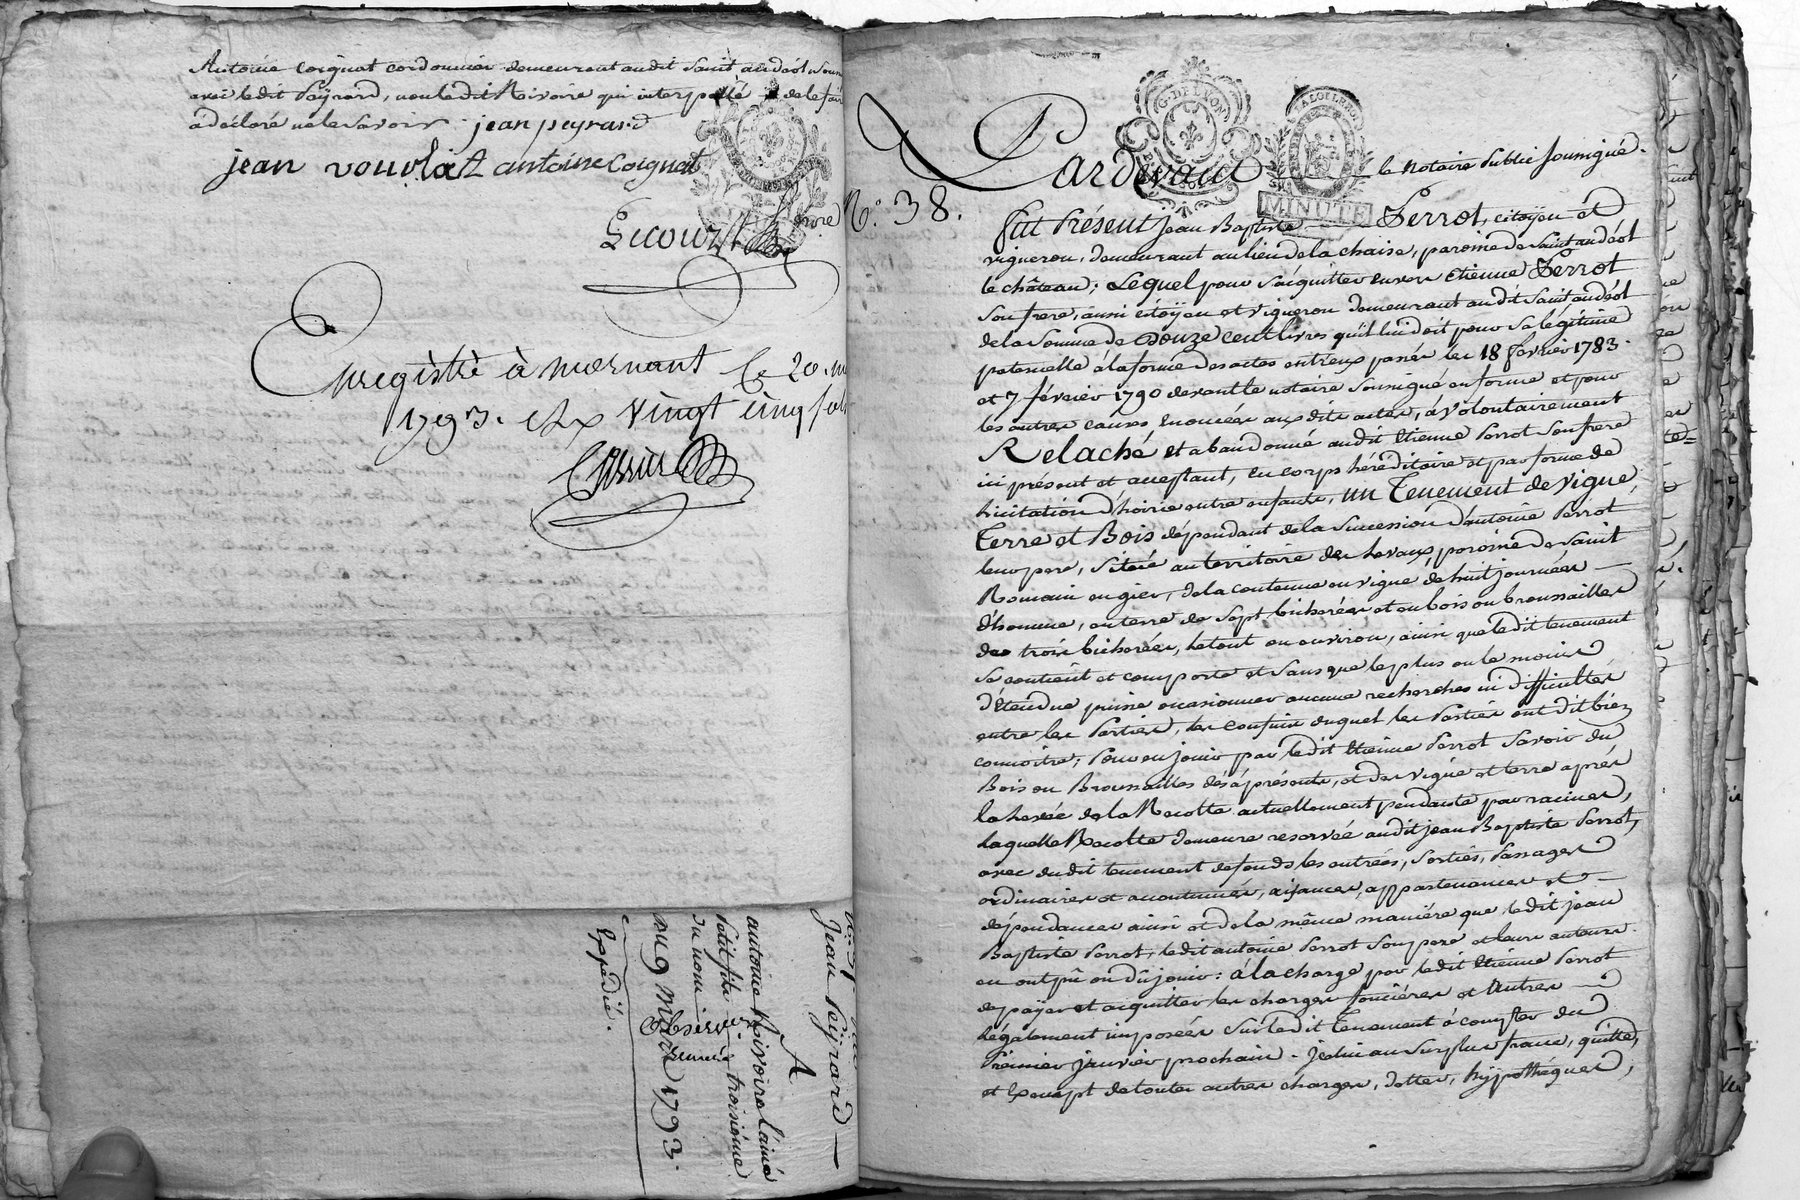 Antoine Coignat cordonnier demeurant audit Saint andéol
avec ledit Peÿrard, non ledit Rivoire qui interpellé de le fair
a déclaré ne le savoir. jean peyrard
jean vouolat antoine Coignat
Enregistré à mornant le 20.
1793. vingt cinq sols
Jean Peÿrard
A
antoine Rivoire l'ainé
petit fils troisième
du nom
du 9 Mars 1793.
Expédié.
N.° 38.
G. DE LYON
LA LOI LE ROI
MINUTE
Pardevant le Notaire Public soussigné.
fut Présent Jean Baptiste Perrot, citöÿen et
vigneron, demeurant au lieu de la chaise, paroisse de Saint andéol
le château; Lequel pour s'acquitter envers Etienne Perrot
son frere, aussi citöÿen et vigneron demeurant audit Saint andéol
de la Somme de Douze cent livres qu'il lui doit pour sa légitime
paternelle à la forme des actes entr'eux passés les 18 février 1783.
et 7 février 1790 devant le notaire soussigné en forme et pour
les autres causes énoncées aux dits actes, à volontairement
Relaché et abandonné audit Etienne Perrot son frere
ici présent et acceptant, en corps héréditaire et par forme de
licitation d'hoirie entre enfants, un Tenement de vigne,
Terre et Bois dépendant de la Succession d'antoine Perrot
leur pere, Situé au territoire des hevaux, paroisse de Saint
Romain en gier, de la contenue en vigne de huit journées
d'homme, en terre de Sept bicherées et en bois ou broussailles
de trois bicherées, le tout ou environ, ainsi que ledit tenement
se contient et comporte et sans que le plus ou le moins
d'étendue puisse occasionner aucunes recherches ni difficultés
entre les Parties, les confins duquel les Parties ont dit bien
connoitre; Pour en jouir par ledit Etienne Perrot Savoir du
Bois ou Broussailles dès à présents, et des vigne et terre après
la levée de la Recolte actuellement pendante par racines,
laquelle Recolte demeure reservée audit jean Baptiste Perrot,
avec dudit tenement de fonds les entrées, Sorties, Passages
ordinaires et accoutumés, aisances, appartenances et
dépendances ainsi et de la même manière que ledit jean
Baptiste Perrot, ledit antoine Perrot son pere et leurs auteurs
en ont pû ou dû jouir: à la charge par ledit Etienne Perrot
de païer et acquitter les charges foncières et Autres
légalement imposées sur ledit Tenement à compter du
Premier janvier prochain. jcelui au surplus franc, quitte,
et Exempt de toutes autres charges, dettes, hÿpothéques,